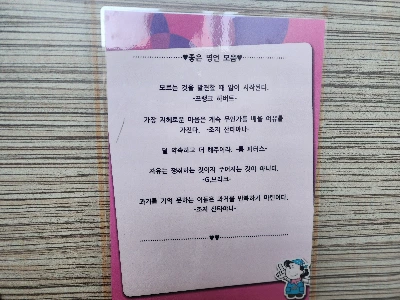 ♥좋은 명언 모음♥
모르는 것을 발견할 때 앎이 시작된다.
-프랭크 허버트-
가장 지혜로운 마음은 계속 무언가를 배울 여유를
가진다. -조지 산타야나-
덜 약속하고 더 해주어라. -톰 피터스-
자유는 쟁취하는 것이지 주어지는 것이 아니다.
과거를 기억 못하는 이들은 과거를 반복하기 마련이다.
-조지 산타야나-
♥♥